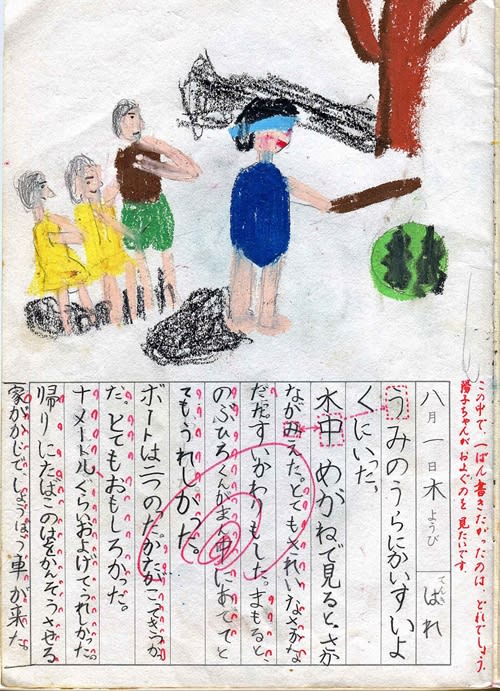 この中で、一ばん書きたかったのは、どれでしょう。
陽子ちゃんがおよぐのを見たいです。
八月一日木ようび てんき はれ
うみのうらにかいすいよ
くにいった。
水中めがねで見ると、さか
ながみえた。とてもきれいなさかな
だた。すいかわりもした。まもると、
のぶひろくんがまん中にあててと
てもうれしかった。
ボートは二つ
た。とてもおもしろかった。
ナメートルぐらいおよげてうれしかった。
帰りにたばこのはをかんそうさせる
家がかじで、しょうぼう車が来た。